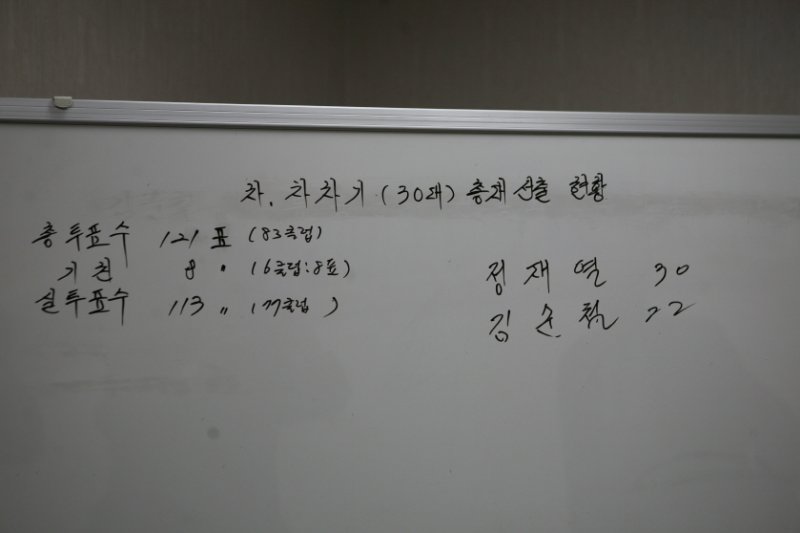 차. 차차기 (30대) 총재선출 현황
총투표수 121 표 (83클럽)
기권 8 〃 (6클럽:8표)
실투표수 113 〃 (77클럽 )
정재열 30
김순철 22